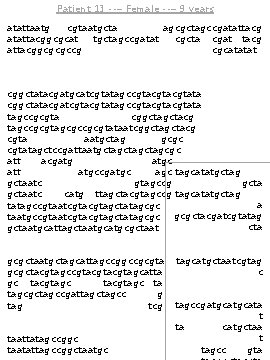 Patient 13 --- Female --- 9 years
atattaatg cgtaatgcta agcgctagccgatattacg
atattacggcgcat tgctagccgatat cgcta cgat tacg
attacggcgcgccg cgcatatat
cggctatacgatgcatcgtatagccgtacgtacgtata
cggctatacgatcgtacgtatagccgtacgtacgtata
tagccgcgta cggctagctacg
tagccgcgtagcgccgcgtataatcggctagctacg
cgta aatgctag gcgc
cgtatagctccgattaatgctagctagctagcgc
att acgatg atgc
att atgccgatgc agc tagcatatgctag
gctaatc gtagccg gcta
gctaatc catg ttagctacgtagccg tagcatatgctag
tatagccgtaatcgtagctagctatagcgc a
taatgccgtaatcgtacgtagctatagcgc gcgctacgatcgtatag
gctaatgcattagctaatgcatgcgctaat cta
gcgctaatgctagcattagccggccgcgta tagcatgctaatcgtag
gcgctacgtagccgtacgtacgtagcatta c
gc tacgtagc tacgtagc ta
tagcgctagccgattagctagcc g
tag tcg
tagccgatgcatgcata
t
ta catgctaa
taattatagccggc t
taatattagccggctaatgc tagcc gta